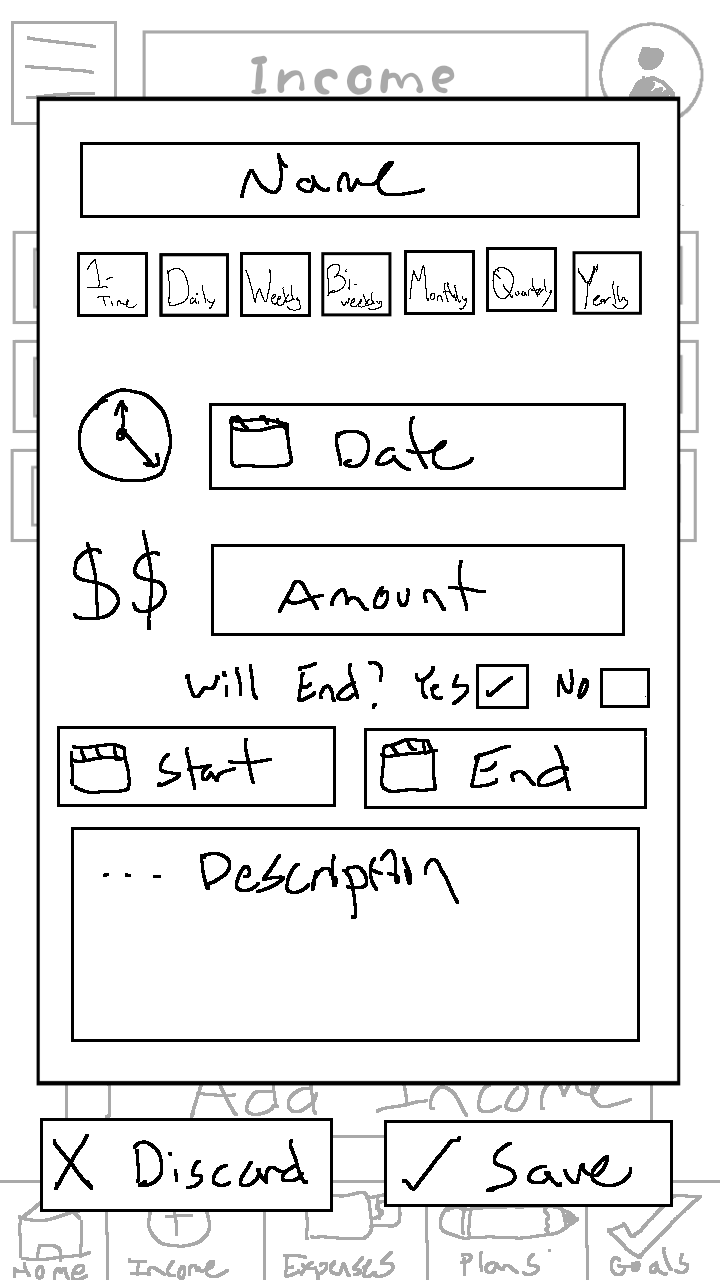 Income
Name
1-Time Daily Weekly Bi-weekly Monthly Quarterly Yearly
Date
$$ Amount
Will End? Yes No
Start End
... Description
Add Income
X Discard ✓ Save
Home Income Expenses Plans Goals